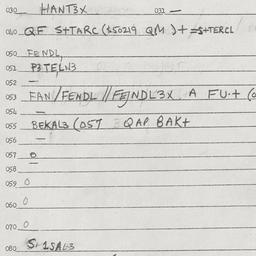 030 HANT3X 031 —
040 QF S+TARC (150219 QM)+=S+TERCL
050 FENDL,
051 P3TELN3
052 —
053 FAN/FENDL //FENDL3X. A FU.+ (
054 —
055 BEKAL3 (057 QAP BAK+
056 —
057 0
058 —
059 0
060 0
070 0
080 S. 1SAL3